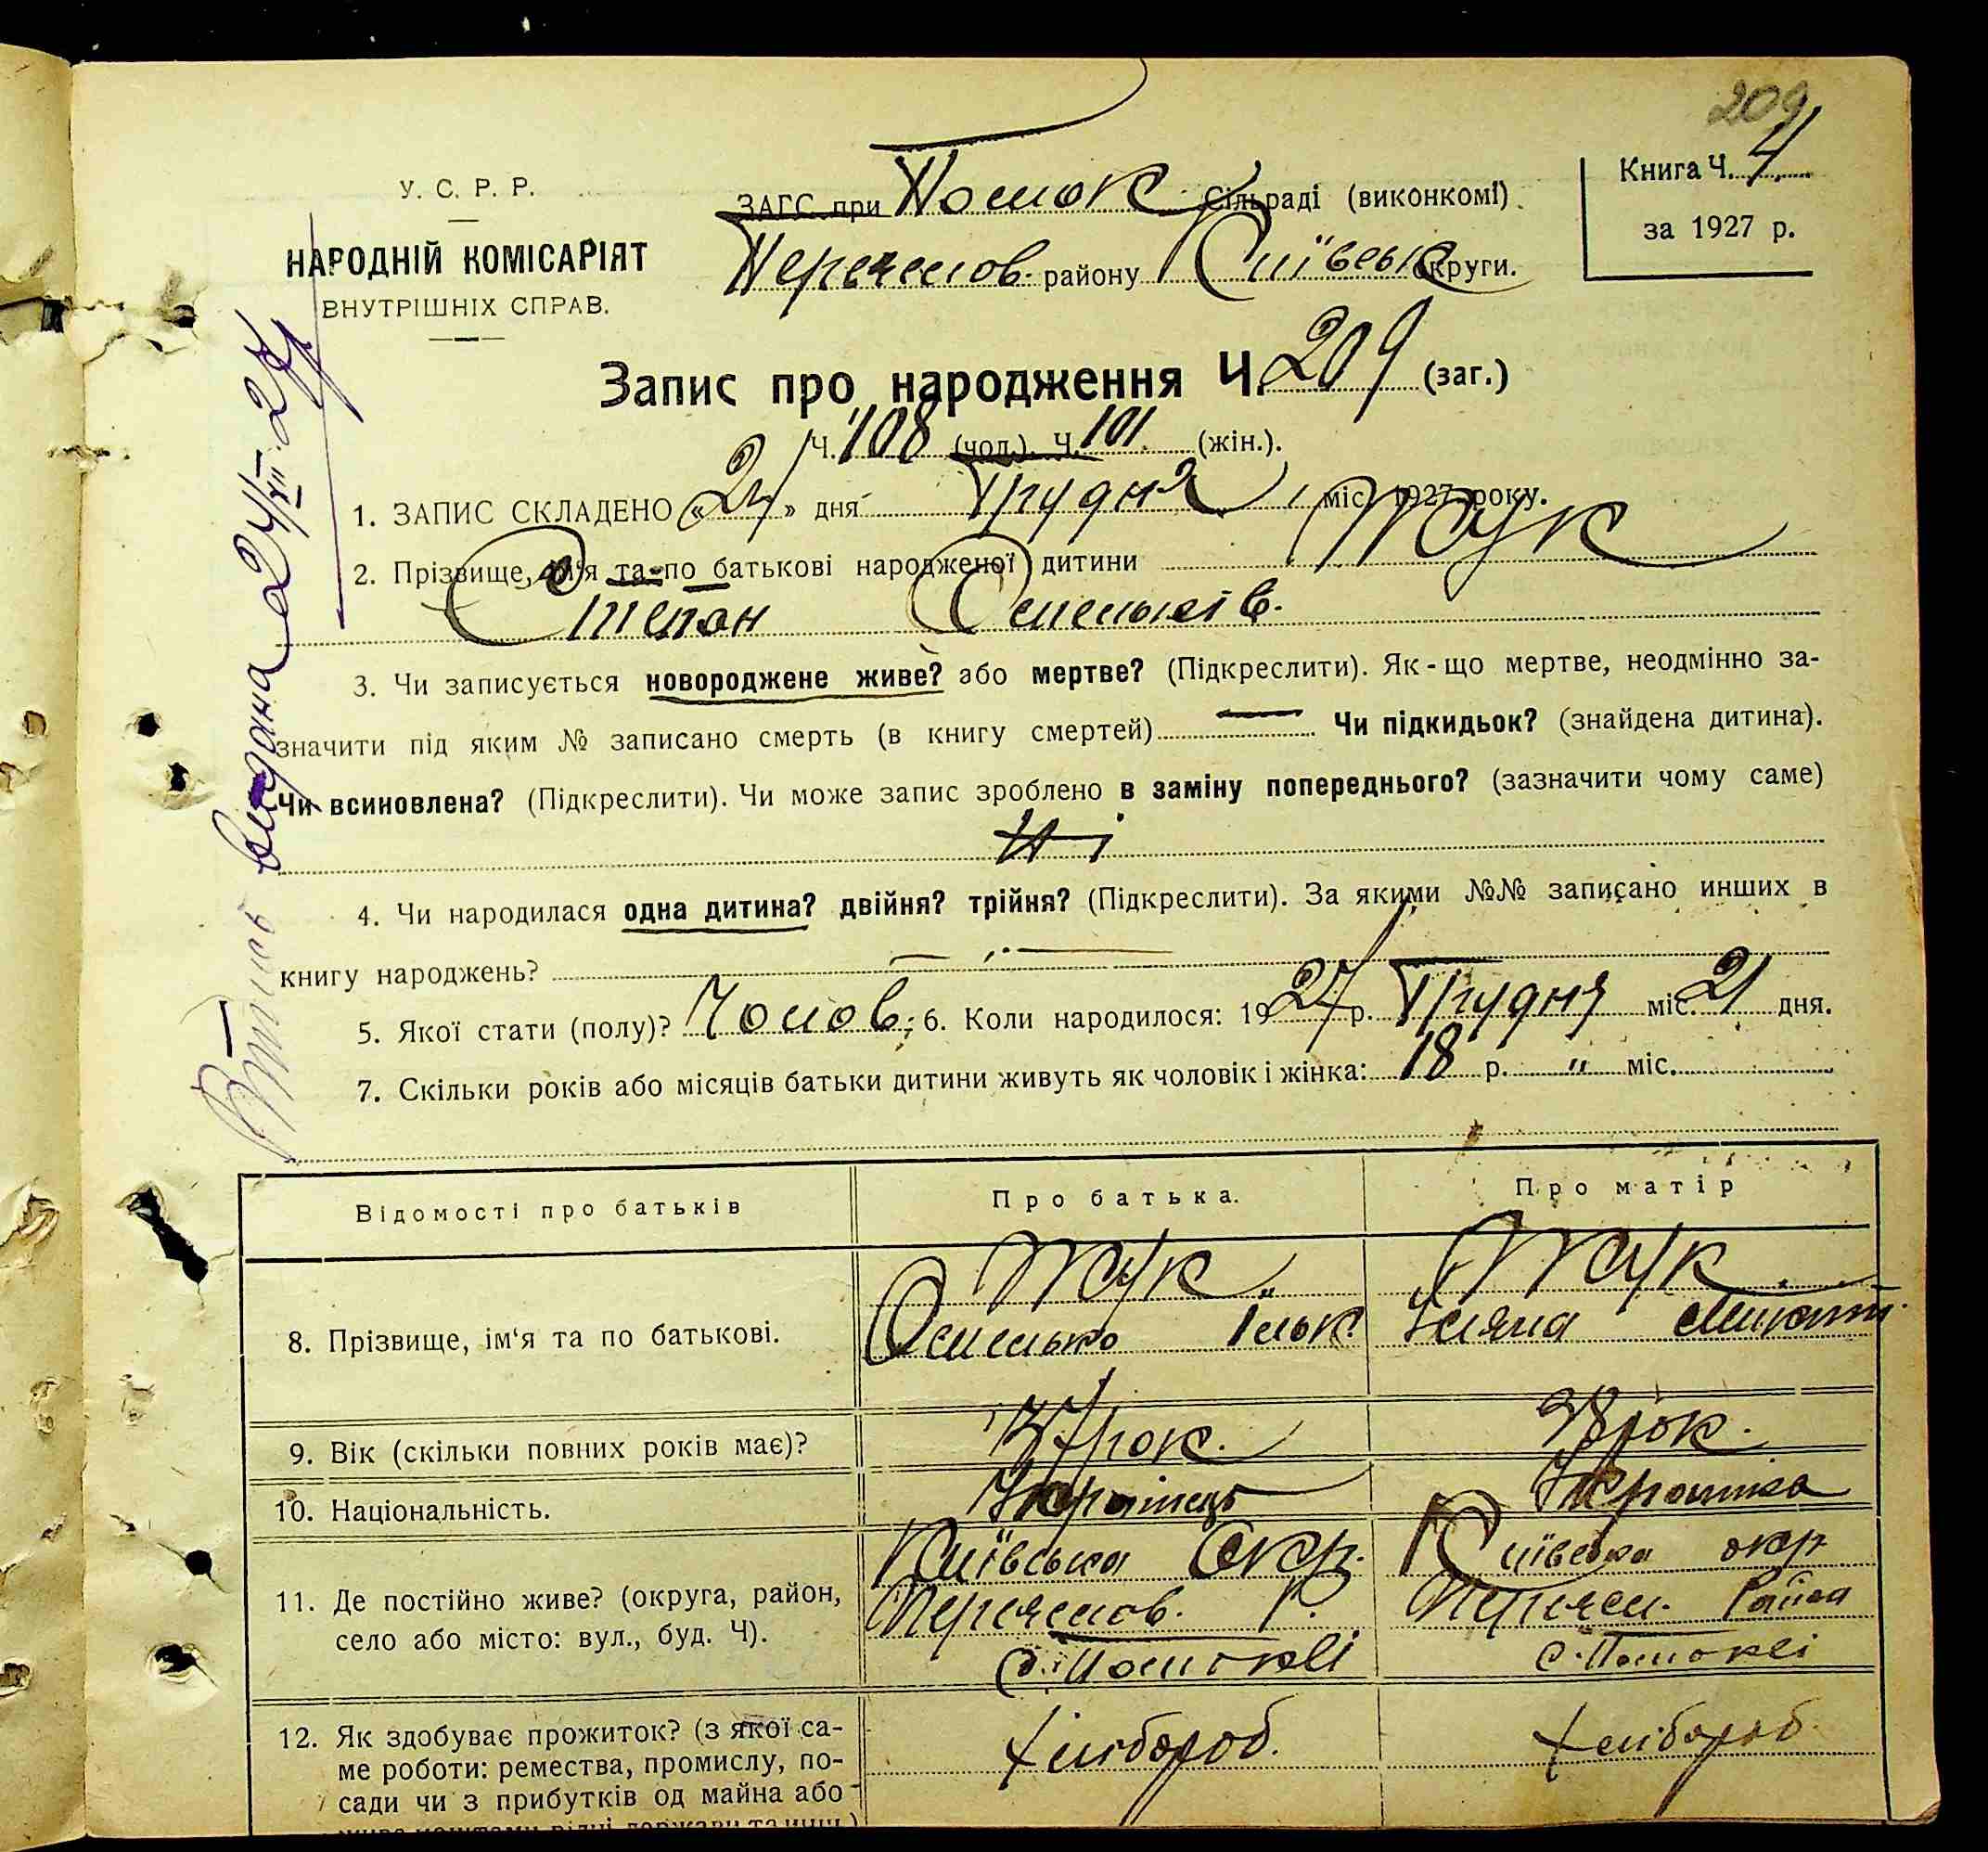 209
У. С. Р. Р.
НАРОДНІЙ КОМІСАРІЯТ
ВНУТРІШНІХ СПРАВ.
ЗАГС при Помок Сільраді (виконкомі).
Переяслов. району Київськ округи.
Книга Ч. 4
за 1927 р.
Запис про народження Ч. 209 (заг.)
Ч. 108 (чол.). Ч. 101. (жін.).
1. ЗАПИС СКЛАДЕНО «24» дня Грудня міс. 1927 року.
2. Прізвище, ім'я та по батькові народженої дитини Жук
Степан Омельків.
3. Чи записується новороджене живе? або мертве? (Підкреслити). Як-що мертве, неодмінно за-
значити під яким № записано смерть (в книгу смертей) — Чи підкидьок? (знайдена дитина).
Чи всиновлена? (Підкреслити). Чи може запис зроблено в заміну попереднього? (зазначити чому саме)
Ні
4. Чи народилася одна дитина? двійня? трійня? (Підкреслити). За якими №№ записано инших в
книгу народжень?
5. Якої стати (полу)? Чолов; 6. Коли народилося: 1927 р. Грудня міс. 21 дня.
7. Скільки років або місяців батьки дитини живуть як чоловік і жінка: 18 р. " міс.
видана 24/XII-27
Відомості про батьків Про батька. Про матір
Жук Жук
8. Прізвище, ім'я та по батькові. Омелько Ільк. Уляна Микит.
9. Вік (скільки повних років має)? 37 рок. 38 рок.
10. Національність. Українець Українка
Київська Окр. Київська окр
11. Де постійно живе? (округа, район, Переяслов. Р. Переясл. Район
село або місто: вул., буд. Ч). с. Помоклі с. Помоклі
12. Як здобуває прожиток? (з якої са- Хлібороб. Хлібороб.
ме роботи: ремества, промислу, по-
сади чи з прибутків од майна або